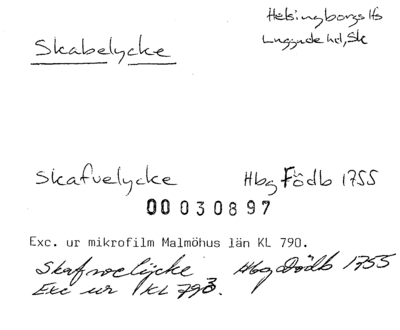 Helsingborgs lfs
Luggude hd, Sk
Skabelycke
Skafvelycke Hbg Födb 1755
00030897
Exc. ur mikrofilm Malmöhus län KL 790.
Skafwelijcke Hbg Dödb 1755
Exc ur KL 793.